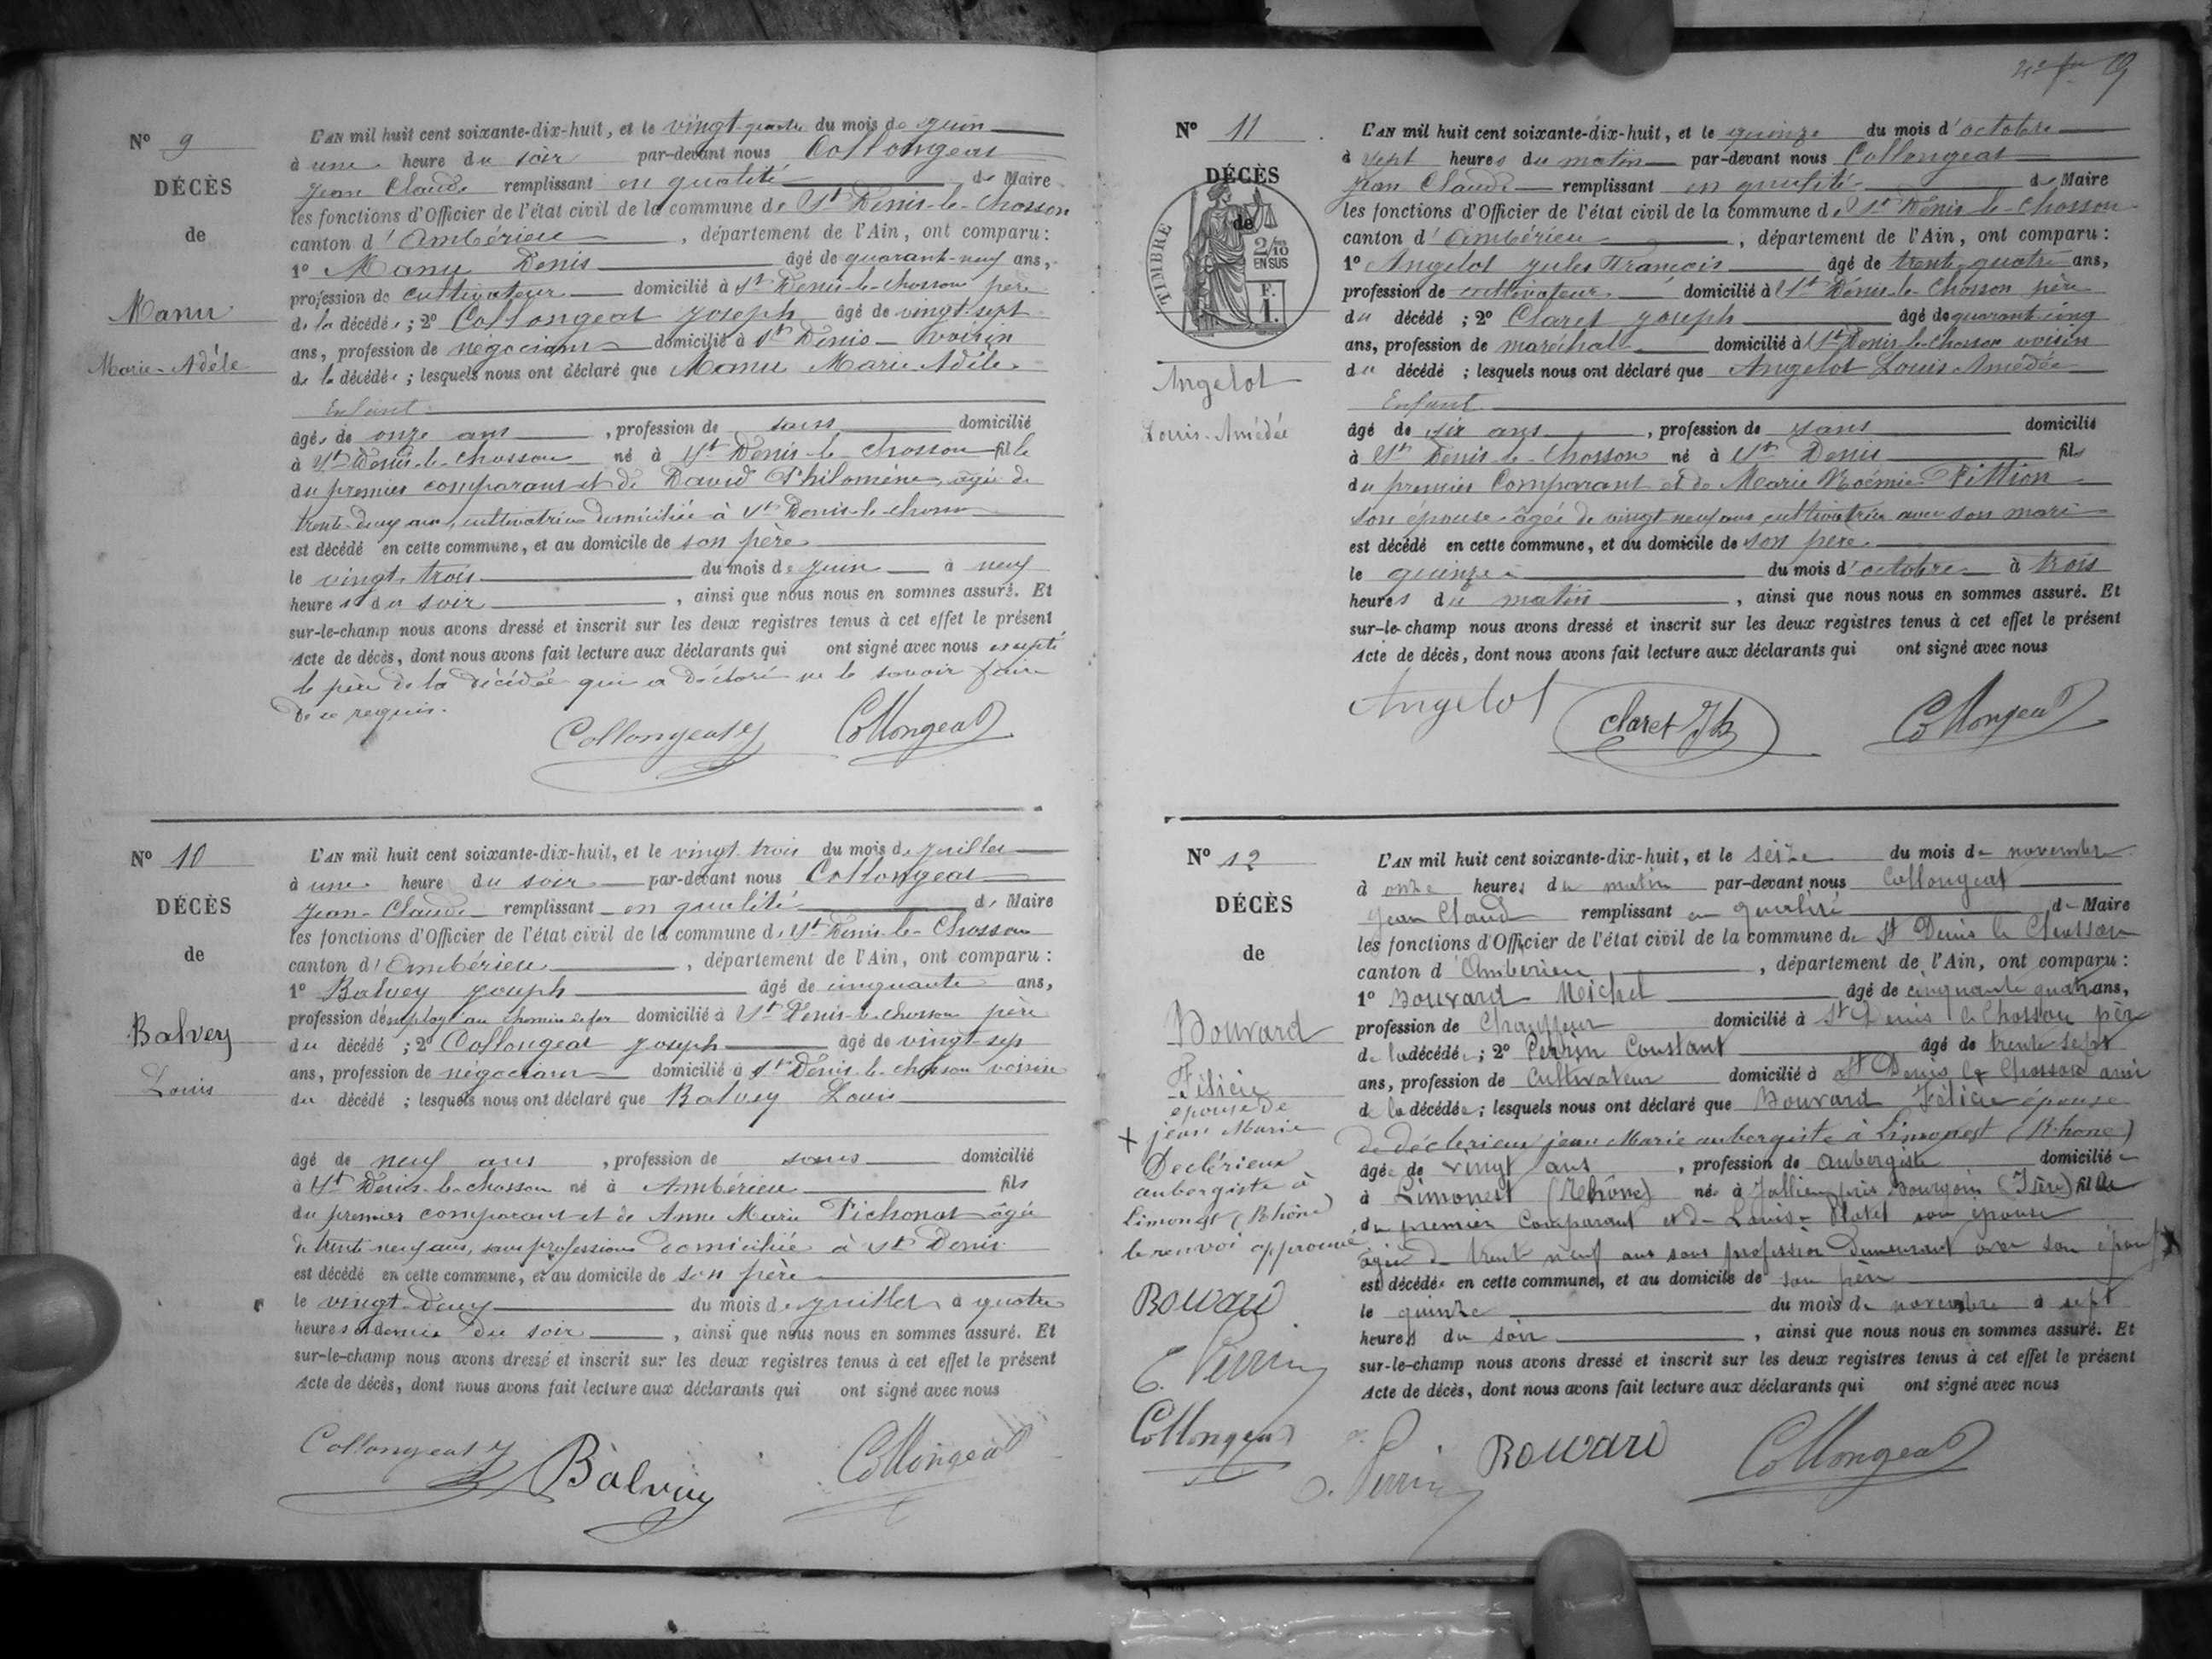 Nº 9
DÉCÈS
de
Manu
Marie-Adèle
L'AN mil huit cent soixante-dix-huit, et le vingt-quatre du mois de juin
à une heure du soir par-devant nous Collongeat
Jean Claude remplissant en qualité de Maire
les fonctions d'Officier de l'état civil de la commune de St Denis-le-Chosson
canton d'Ambérieu, département de l'Ain, ont comparu :
1º Manu Denis âgé de quarant-neuf ans,
profession de cultivateur domicilié à St Denis-le-chosson père
de la décédée ; 2º Collongeat Joseph âgé de vingt-sept
ans, profession de negociant domicilié à St Denis voisin
de la décédée ; lesquels nous ont déclaré que Manu Marie Adèle
Enfant
âgée de onze ans, profession de sans domicilié
à St Denis-le-chosson né à St Denis-le-chosson fille
du premier comparant et de David Philomène âgée de
trente-deux ans, cultivatrice domiciliée à St Denis-le-chosson
est décédé en cette commune, et au domicile de son père
le vingt-trois du mois de juin à neuf
heures du soir, ainsi que nous nous en sommes assuré. Et
sur-le-champ nous avons dressé et inscrit sur les deux registres tenus à cet effet le présent
Acte de décès, dont nous avons fait lecture aux déclarants qui ont signé avec nous excepté
le père de la décédée qui a déclaré ne le savoir faire
de ce requis.
Collongeat J Collongeat
Nº 10
DÉCÈS
de
Balvey
Louis
L'AN mil huit cent soixante-dix-huit, et le vingt trois du mois de juillet
à une heure du soir par-devant nous Collongeat
Jean-Claude remplissant en qualité de Maire
les fonctions d'Officier de l'état civil de la commune de St Denis-le-Chosson
canton d'Ambérieu, département de l'Ain, ont comparu :
1º Balvey Joseph âgé de cinquante ans,
profession d'employé au chemin de fer domicilié à St Denis-le-chosson père
du décédé ; 2º Collongeat Joseph âgé de vingt-sept
ans, profession de negociant domicilié à St Denis-le-chosson voisin
du décédé ; lesquels nous ont déclaré que Balvey Louis
âgé de neuf ans, profession de sans domicilié
à St Denis-le-chosson né à Ambérieu fils
du premier comparant et de Anne Marie Pichonat âgée
de trente neuf ans, sans profession domiciliée à St Denis
est décédé en cette commune, et au domicile de son père
le vingt-deux du mois de juillet à quatre
heures et demie du soir, ainsi que nous nous en sommes assuré. Et
sur-le-champ nous avons dressé et inscrit sur les deux registres tenus à cet effet le présent
Acte de décès, dont nous avons fait lecture aux déclarants qui ont signé avec nous
Collongeat J Balvey Collongeat
19
Nº 11
DÉCÈS
de
TIMBRE
2/10
EN SUS
F.
1.
Angelot
Louis-Amédée
L'AN mil huit cent soixante-dix-huit, et le quinze du mois d'octobre
à sept heures du matin par-devant nous Collongeat
Jean Claude remplissant en qualité de Maire
les fonctions d'Officier de l'état civil de la commune de St Denis-le-Chosson
canton d'Ambérieu, département de l'Ain, ont comparu :
1º Angelot Jules François âgé de trente-quatre ans,
profession de cultivateur domicilié à St Denis-le-Chosson père
du décédé ; 2º Claret Joseph âgé de quarant cinq
ans, profession de maréchal domicilié à St Denis-le-chosson voisin
du décédé ; lesquels nous ont déclaré que Angelot Louis Amédée
Enfant
âgé de six ans, profession de sans domicilié
à St Denis-le-Chosson né à St Denis fils
du premier Comparant et de Marie Noémie Fittion
son épouse âgée de vingt neuf ans cultivatrice avec son mari
est décédé en cette commune, et au domicile de son père
le quinze du mois d'octobre à trois
heures du matin, ainsi que nous nous en sommes assuré. Et
sur-le-champ nous avons dressé et inscrit sur les deux registres tenus à cet effet le présent
Acte de décès, dont nous avons fait lecture aux déclarants qui ont signé avec nous
Angelot Claret Jh Collongeat
Nº 12
DÉCÈS
de
Bouvard
Félicie
épouse de
jean Marie
Declérieux
aubergiste à
Limonest (Rhône)
le renvoi approuvé
Bouvard
C. Perrin
Collongeat
L'AN mil huit cent soixante-dix-huit, et le seize du mois de novembre
à onze heures du matin par-devant nous Collongeat
Jean Claude remplissant en qualité de Maire
les fonctions d'Officier de l'état civil de la commune de St Denis le Chosson
canton d'Ambérieu, département de l'Ain, ont comparu :
1º Bouvard Michel âgé de cinquante quatre ans,
profession de Chauffeur domicilié à St Denis le Chosson père
de la décédée ; 2º Perrin Constant âgé de trente sept
ans, profession de Cultivateur domicilié à St Denis le Chosson ami
de la décédée ; lesquels nous ont déclaré que Bouvard Félicie épouse
de déclerieux jean Marie aubergiste à Limonest (Rhône)
âgée de vingt ans, profession de aubergiste domiciliée
à Limonest (Rhône) née à Jallieu près Bourgoin (Isère) fille
du premier Comparant et de Louise Platel son épouse
âgée de trent neuf ans sans profession demeurant avec son époux
est décédée en cette commune, et au domicile de son père
le quinze du mois de novembre à sept
heures du soir, ainsi que nous nous en sommes assuré. Et
sur-le-champ nous avons dressé et inscrit sur les deux registres tenus à cet effet le présent
Acte de décès, dont nous avons fait lecture aux déclarants qui ont signé avec nous
C. Perrin Bouvard Collongeat